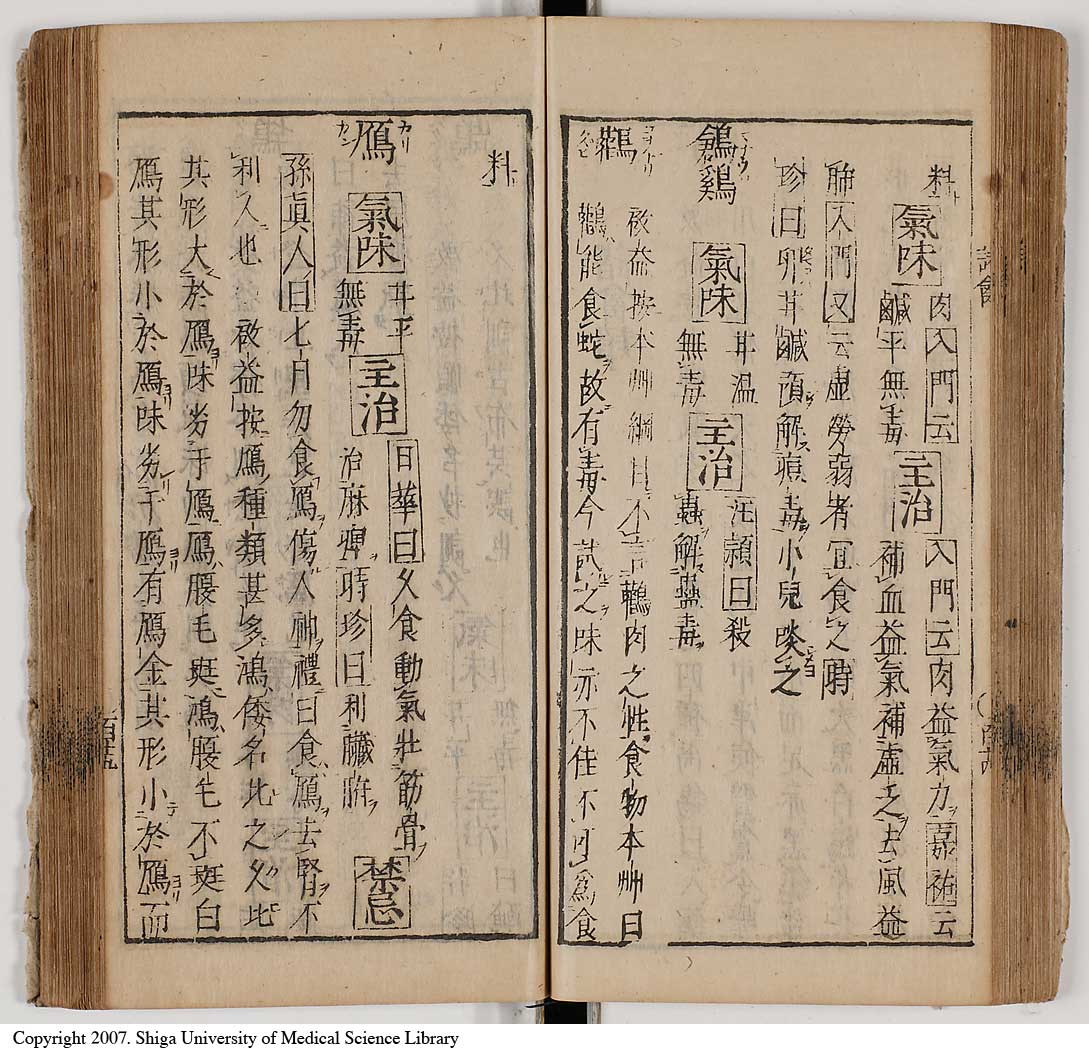 料 氣味 肉入門云
鹹平無毒 主治 入門云肉益氣力嘉祐云
補血益氣補虛乏去風益
入門又云虛勞弱者宜食之時
珍曰卵甘鹹預解痘毒小兒啖之
鶬鷄 氣味 甘温
無毒 主治 汪頴曰殺
蟲解蠱毒
鸛
啟益按本艸綱目不言鸛肉之性食物本艸曰
鸛能食蛇故有毒今試之味亦不佳不可為食
料
鴈 カリ カン 氣味 甘平
無毒 主治 日華曰久食動氣壯筋骨
治麻痺時珍曰利臟腑 禁忌
孫眞人曰七月勿食鴈傷人神禮曰食鴈去腎不
利人也 啟益按鴈種類甚多鴻倭名比之久比
其形大於鴈味劣于鴈鴈腰毛斑鴻腰毛不斑白
鴈其形小於鴈味劣于鴈有鴈金其形小於鴈而
Copyright 2007. Shiga University of Medical Science Library